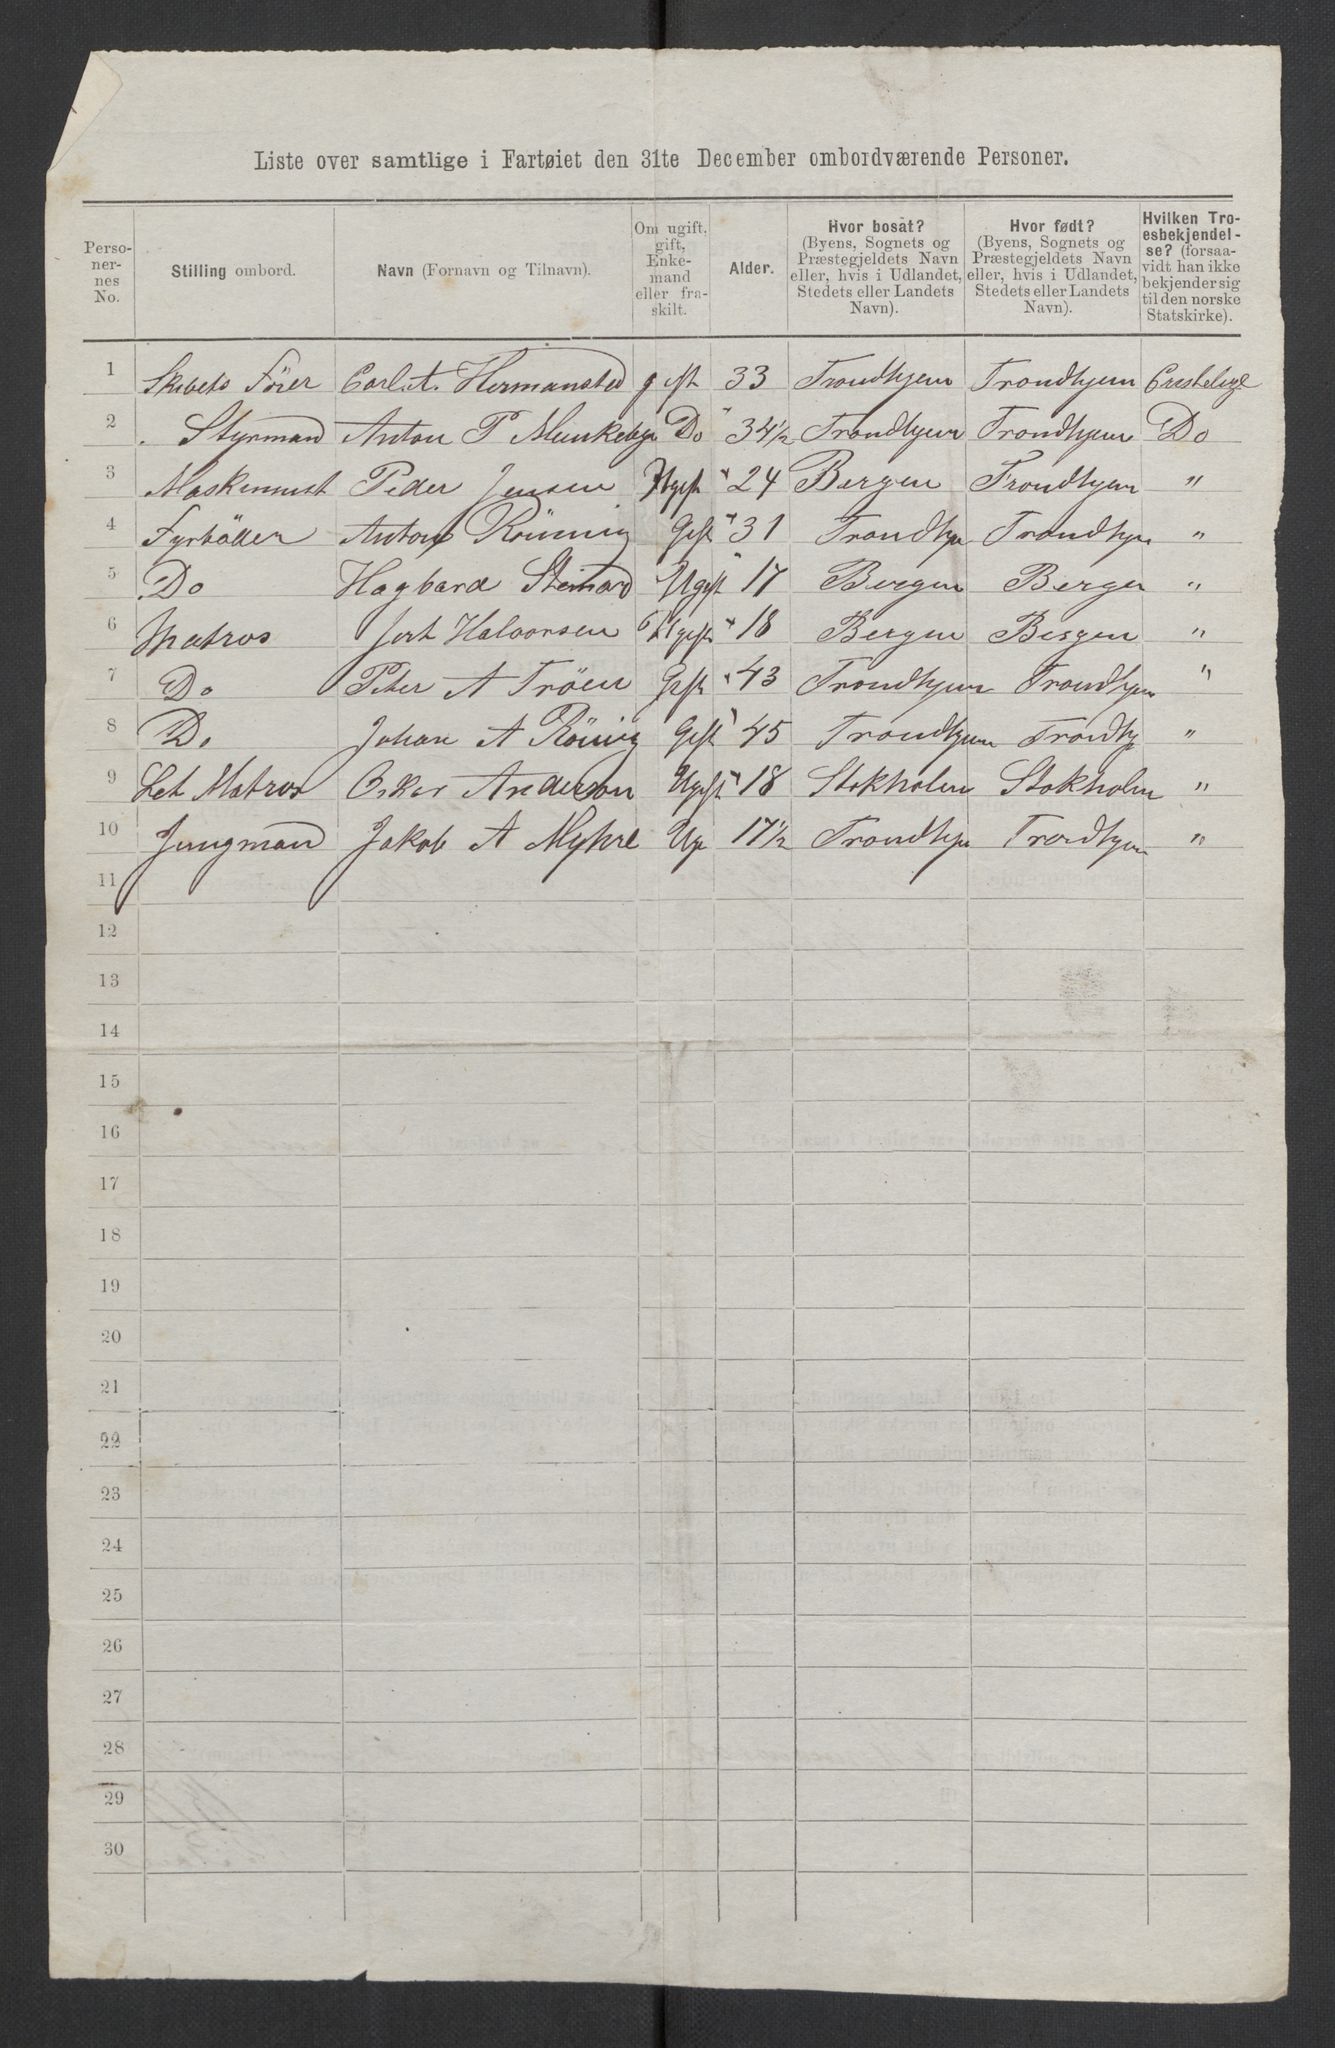 Liste over samtlige i Fartøiet den 31te December ombordværende Personer.
Perso-
ner-
nes
No.
Stilling ombord.
Navn (Fornavn og Tilnavn).
Om ugift,
gift,
Enke-
mand
eller fra-
skilt.
Alder.
Hvor bosat?
(Byens, Sognets og
Præstegjeldets Navn
eller, hvis i Udlandet,
Stedets eller Landets
Navn).
Hvor født?
(Byens, Sognets og
Præstegjeldets Navn
eller, hvis i Udlandet,
Stedets eller Landets
Navn).
Hvilken Tro-
esbekjendel-
se? (forsaa-
vidt han ikke
bekjender sig
til den norske
Statskirke).
1 Skibets Förer Carl. A. Hermansted gift 33 Trondhjem Trondhjem
2 Styrman Anton P Do 34½ Trondhjem Trondhjem Do
3 Maskinnist Peder Jensen Ugift 24 Bergen Trondhjem "
4 Fyrböder Anton Rönnig Gift 31 Trondhjn Trondhjn "
5 Do Hagbard Ugift 17 Bergen Bergen "
6 Matros Halvorsen Ugift 18 Bergen Bergen "
7 Do Peter A Tröen Gift 43 Trondhjem Trondhjem "
8 Do Johan A Rönnig Gift 45 Trondhjem Trondhj "
9 Let Matros Osker Anderson Ugift 18 Stokholm Stokholm "
10 Jungman Jakob A Myhre Ug 17½ Trondhjn Trondhjem "
11
12
13
14
15
16
17
18
19
20
21
22
23
24
25
26
27
28
29
30